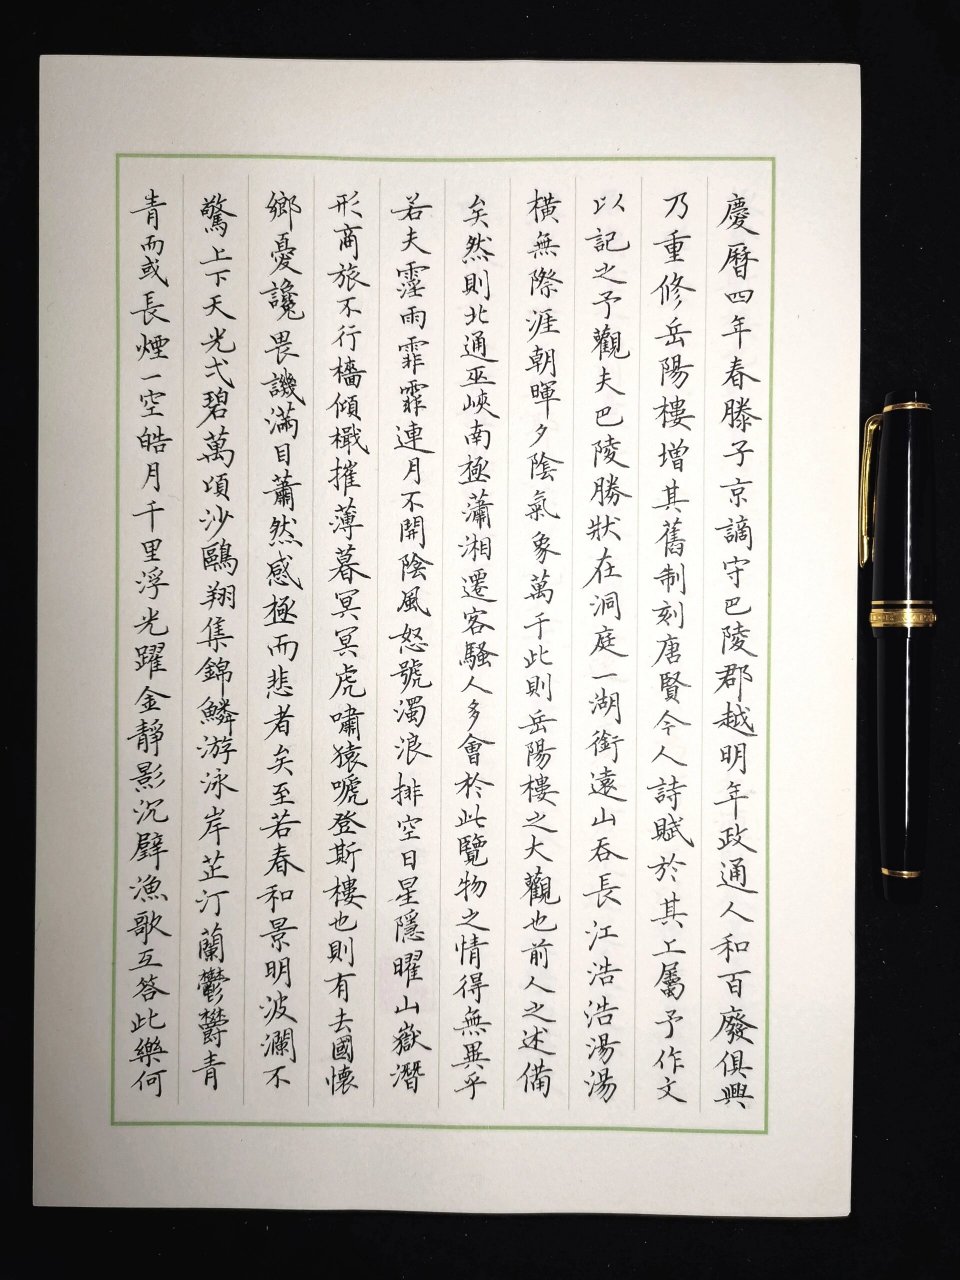 慶曆四年春滕子京謫守巴陵郡越明年政通人和百廢俱興
乃重修岳陽樓增其舊制刻唐賢今人詩賦於其上屬予作文
以記之予觀夫巴陵勝狀在洞庭一湖銜遠山吞長江浩浩湯湯
橫無際涯朝暉夕陰氣象萬千此則岳陽樓之大觀也前人之述備
矣然則北通巫峽南極瀟湘遷客騷人多會於此覽物之情得無異乎
若夫霪雨霏霏連月不開陰風怒號濁浪排空日星隱曜山嶽潛
形商旅不行檣傾檝摧薄暮冥冥虎嘯猿嗁登斯樓也則有去國懷
鄉憂讒畏譏滿目蕭然感極而悲者矣至若春和景明波瀾不
驚上下天光弌碧萬頃沙鷗翔集錦鱗游泳岸芷汀蘭鬱鬱青
青而或長煙一空皓月千里浮光躍金靜影沉璧漁歌互答此樂何